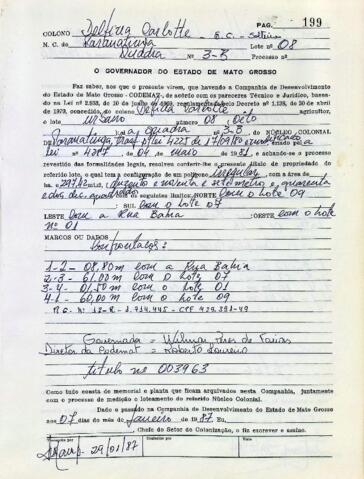 PAG. 199
COLONO Delfina Carlotte E.C. - Solteira
N. C. de Paranatinga Lote nº 08
Quadra nº 3-B Processo nº
O GOVERNADOR DO ESTADO DE MATO GROSSO
Faz saber, aos que o presente virem, que havendo a Companhia de Desenvolvimento
do Estado de Mato Grosso - CODEMAT, de acordo com os pareceres Técnico e Jurídico, baseado
na Lei nº de 20 de junho de regulamentada Decreto nº 1.138, de 20 de abril
de 1970, concedido, ao colono Carlotte agricultor,
o lote urbano nº 08, Oito
na quadra nº 3-B do NÚCLEO COLONIAL
Paranatinga, criado pelo
Lei nº de 04 de maio de 81 e achando-se o processo
revestido das formalidades legais, resolve conferir-lhe o presente título de propriedade do
referido lote, o qual tem a configuração de um polígono irregular com a
área de duzentos e noventa e sete metros e quarenta
e dois dec. quadrados com os seguintes limites: NORTE Com o lote 09
SUL Com o lote 07
LESTE Com a Rua Bahia OESTE Com o lote
nº 01
MARCOS OU DADOS
Confrontações:
1-2 - 08,80m com a Rua Bahia
2-3 - 61,00m com o lote 07
3-4 - 01,50m com o lote 01
4-1 - 60,00m com o lote 09
Governador = Wilmar Peres de Farias
Diretor da Codemat = Roberto Loureiro
título nº 003963
Como tudo consta de memorial e planta que ficam arquivados nesta Companhia, juntamente
com o processo de medição e loteamento do referido Núcleo Colonial.
Dado e passado na Companhia de Desenvolvimento do Estado de Mato Grosso
aos 07 dias do mês de Janeiro de 1987. Eu,
Chefe do Setor de Colonização, o fiz escrever e assino.
29/01/87